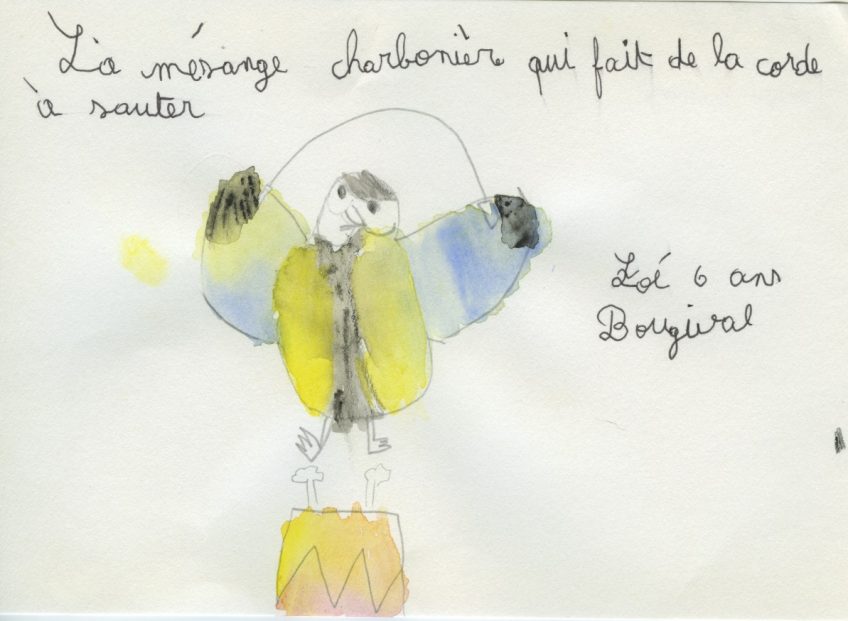 La mésange charbonière qui fait de la corde
à sauter
Zoé 6 ans
Bougival